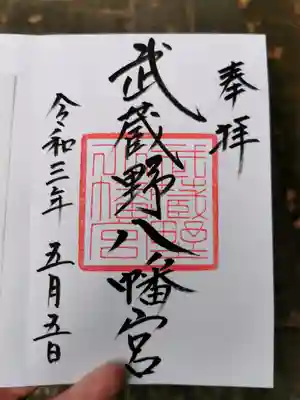 奉拝
武蔵野八幡宮
武蔵野八幡宮
令和三年 五月五日